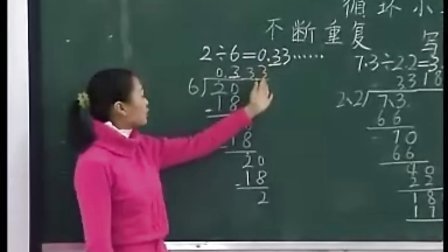 循环小
不断重复
写
2÷6=0.33……
0.333
6 20
18
20
18
20
18
2
7.3÷2.2=3.
3318
2.2 7.3
66
70
66
40
22
18
17